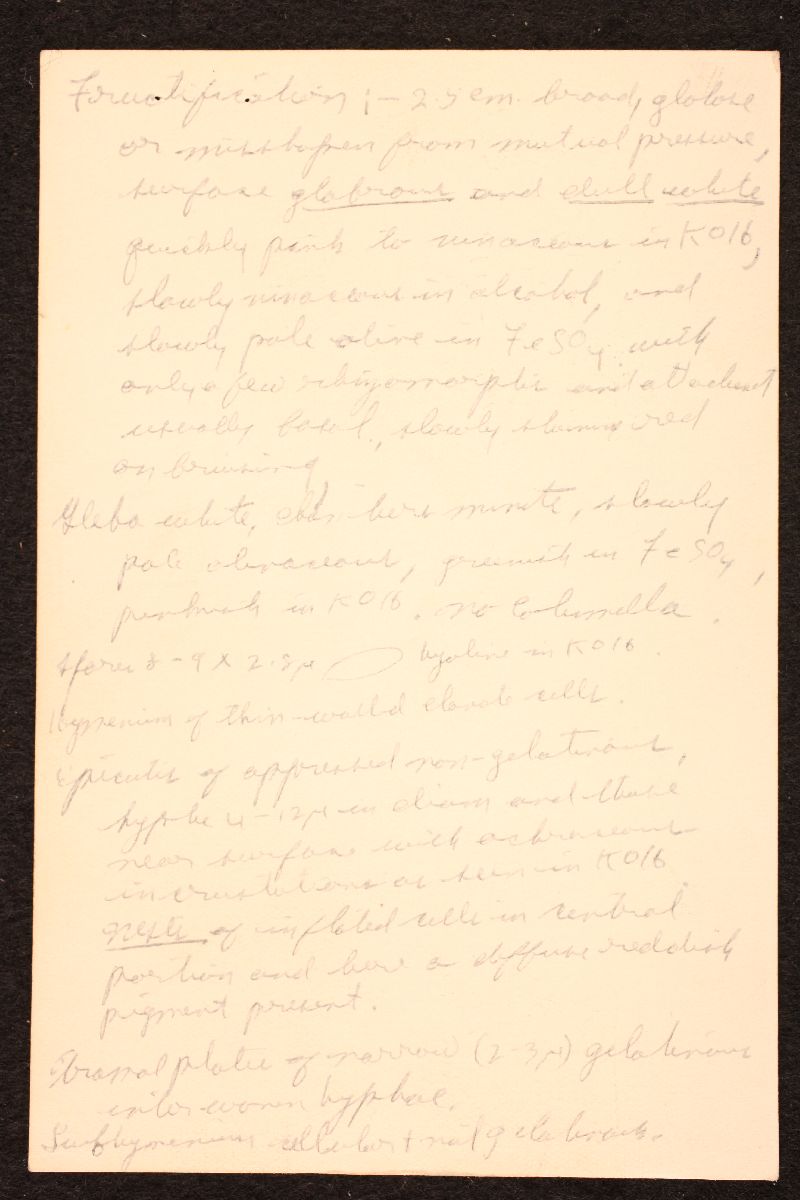 Fructification 1-2.5 cm. broad, globose
or misshapen from mutual pressure,
surface glabrous and dull white
quickly pink to vinaceous in KOH,
slowly vinaceous in alcohol, and
slowly pale olive in FeSO4, with
only a few rhizomorphs and attachment
usually basal, slowly staining red
on bruising
Gleba white, chambers minute, slowly
pale olivaceous, greenish in FeSO4,
pinkish in KOH. no columella.
Spores 8-9 X 2.5µ hyaline in KOH.
Hymenium of thin-walled clavate cells.
Epicutis of appressed non-gelatinous,
hyphae 4-12µ in diam and those
near surface with ochraceous
incrustations as seen in KOH.
Nests of inflated cells in central
portion and here a diffuse reddish
pigment present.
Tramal plates of narrow (2-3µ) gelatinous
interwoven hyphae.
Subhymenium cellular + not gelatinous.